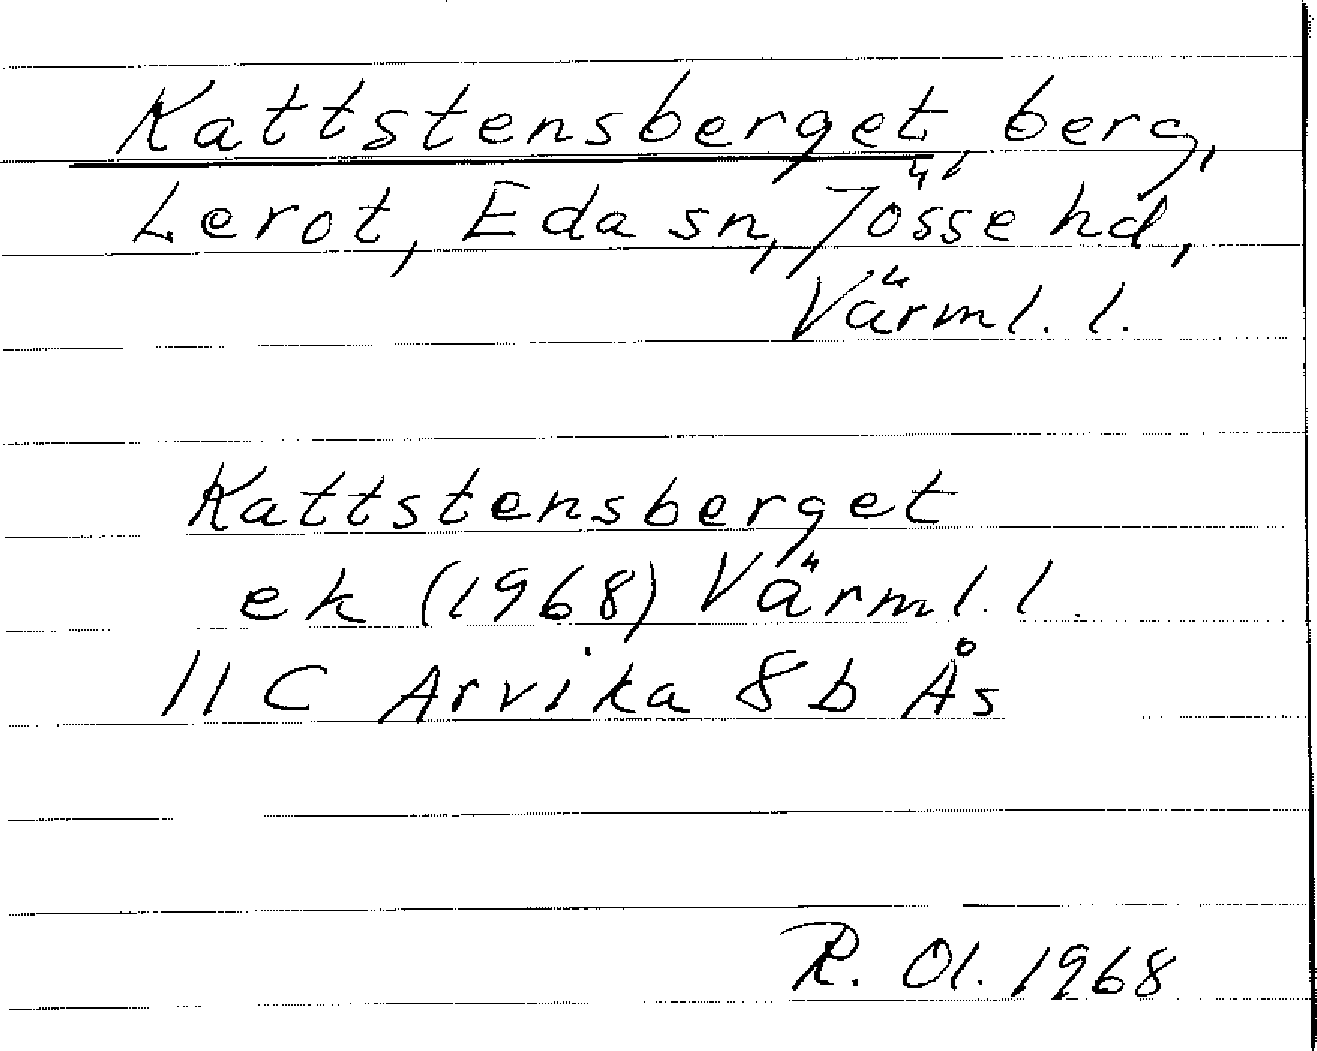 Kattstensberget, berg,
Lerot, Eda sn, Jösse hd,
Värml. l.
Kattstensberget
ek (1968) Värml. l.
11 C Arvika 8 b Ås
R. Ol. 1968